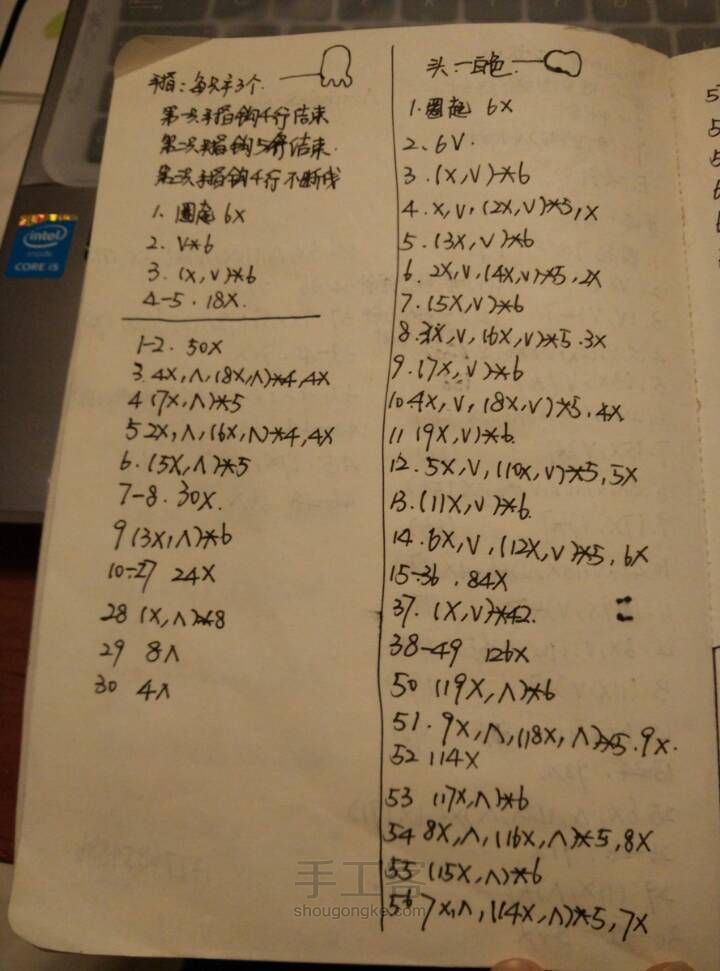 手指：每只手3个.
第一次手指钩4行结束
第二次手指钩5行结束.
第三次手指钩4行不断线
1. 圈起 6X
2. V*6
3. (X,V)*6
4-5. 18X.
1-2. 50X
3. 4X,Λ,(8X,Λ)*4,4X
4 (7X,Λ)*5
5 2X,Λ,(6X,Λ)*4,4X
6. (5X,Λ)*5
7-8. 30X.
9 (3X,Λ)*6
10-27 24X
28 (X,Λ)*8
29 8Λ
30 4Λ
头.一白色.
1.圈起 6X
2. 6V.
3. (X,V)*6
4. X,V,(2X,V)*5,X
5. (3X,V)*6
6. 2X,V,(4X,V)*5.2X
7. (5X,V)*6
8. 3X,V,(6X,V)*5.3X
9. (7X,V)*6
10.4X,V,(8X,V)*5,4X
11 (9X,V)*6
12. 5X,V,(10X,V)*5,5X
13. (11X,V)*6
14. 6X,V,(12X,V)*5,6X
15-36. 84X
37. (X,V)*42.
38-49 126X
50 (19X,Λ)*6
51. 9X,Λ,(18X,Λ)*5.9X.
52 114X
53 (17X,Λ)*6
54 8X,Λ,(16X,Λ)*5,8X
55 (15X,Λ)*6
56 7X,Λ,(14X,Λ)*5,7X
intel
inside
CORE i5
手工客
shougongke.com